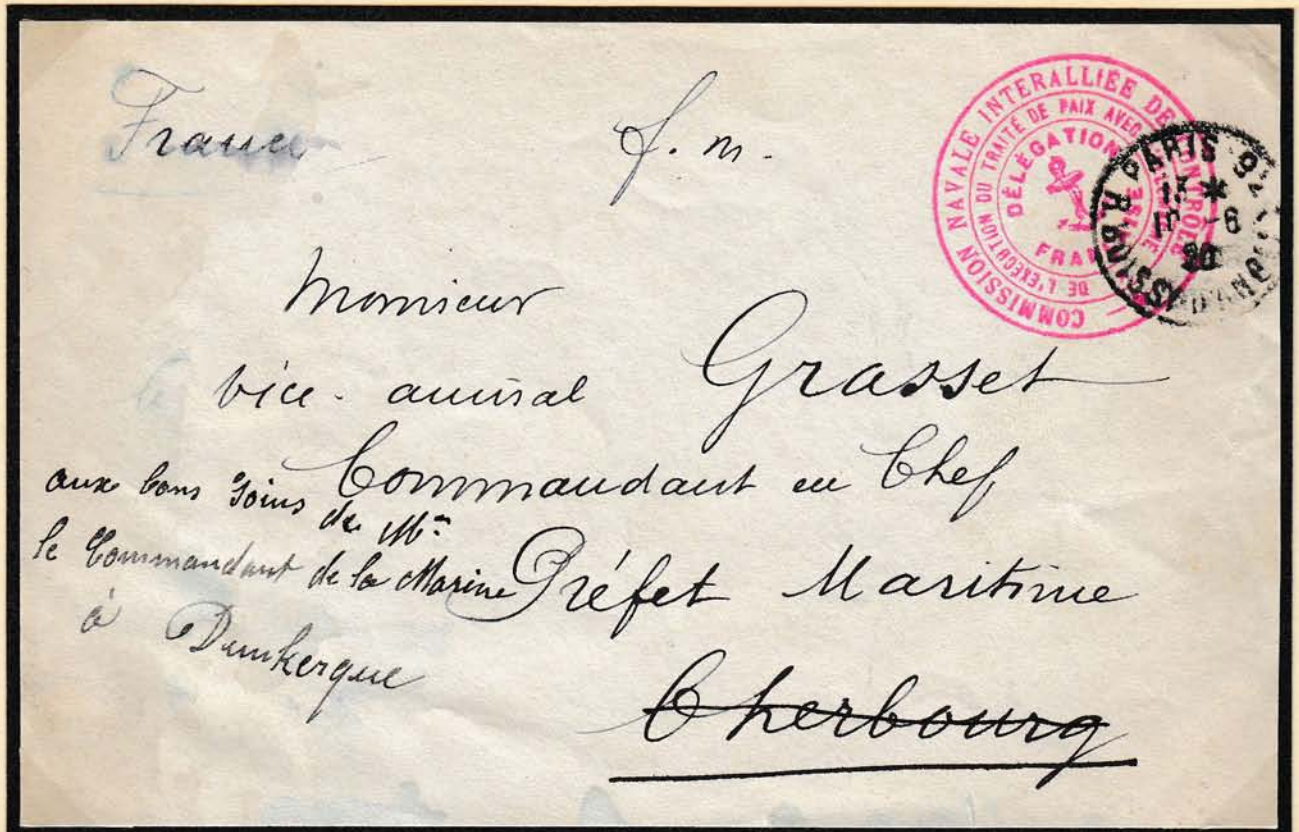 France
f. m.
COMMISSION NAVALE INTERALLIÉE DE CONTRÔLE
DE L'EXÉCUTION DU TRAITÉ DE PAIX AVEC
DÉLÉGATION
PARIS 92
R. BOISSY-D'ANGLAS
Monsieur
vice-amiral Grasset
Commandant en Chef
Préfet Maritime
Cherbourg
aux bons soins de Mr
le Commandant de la Marine
à Dunkerque